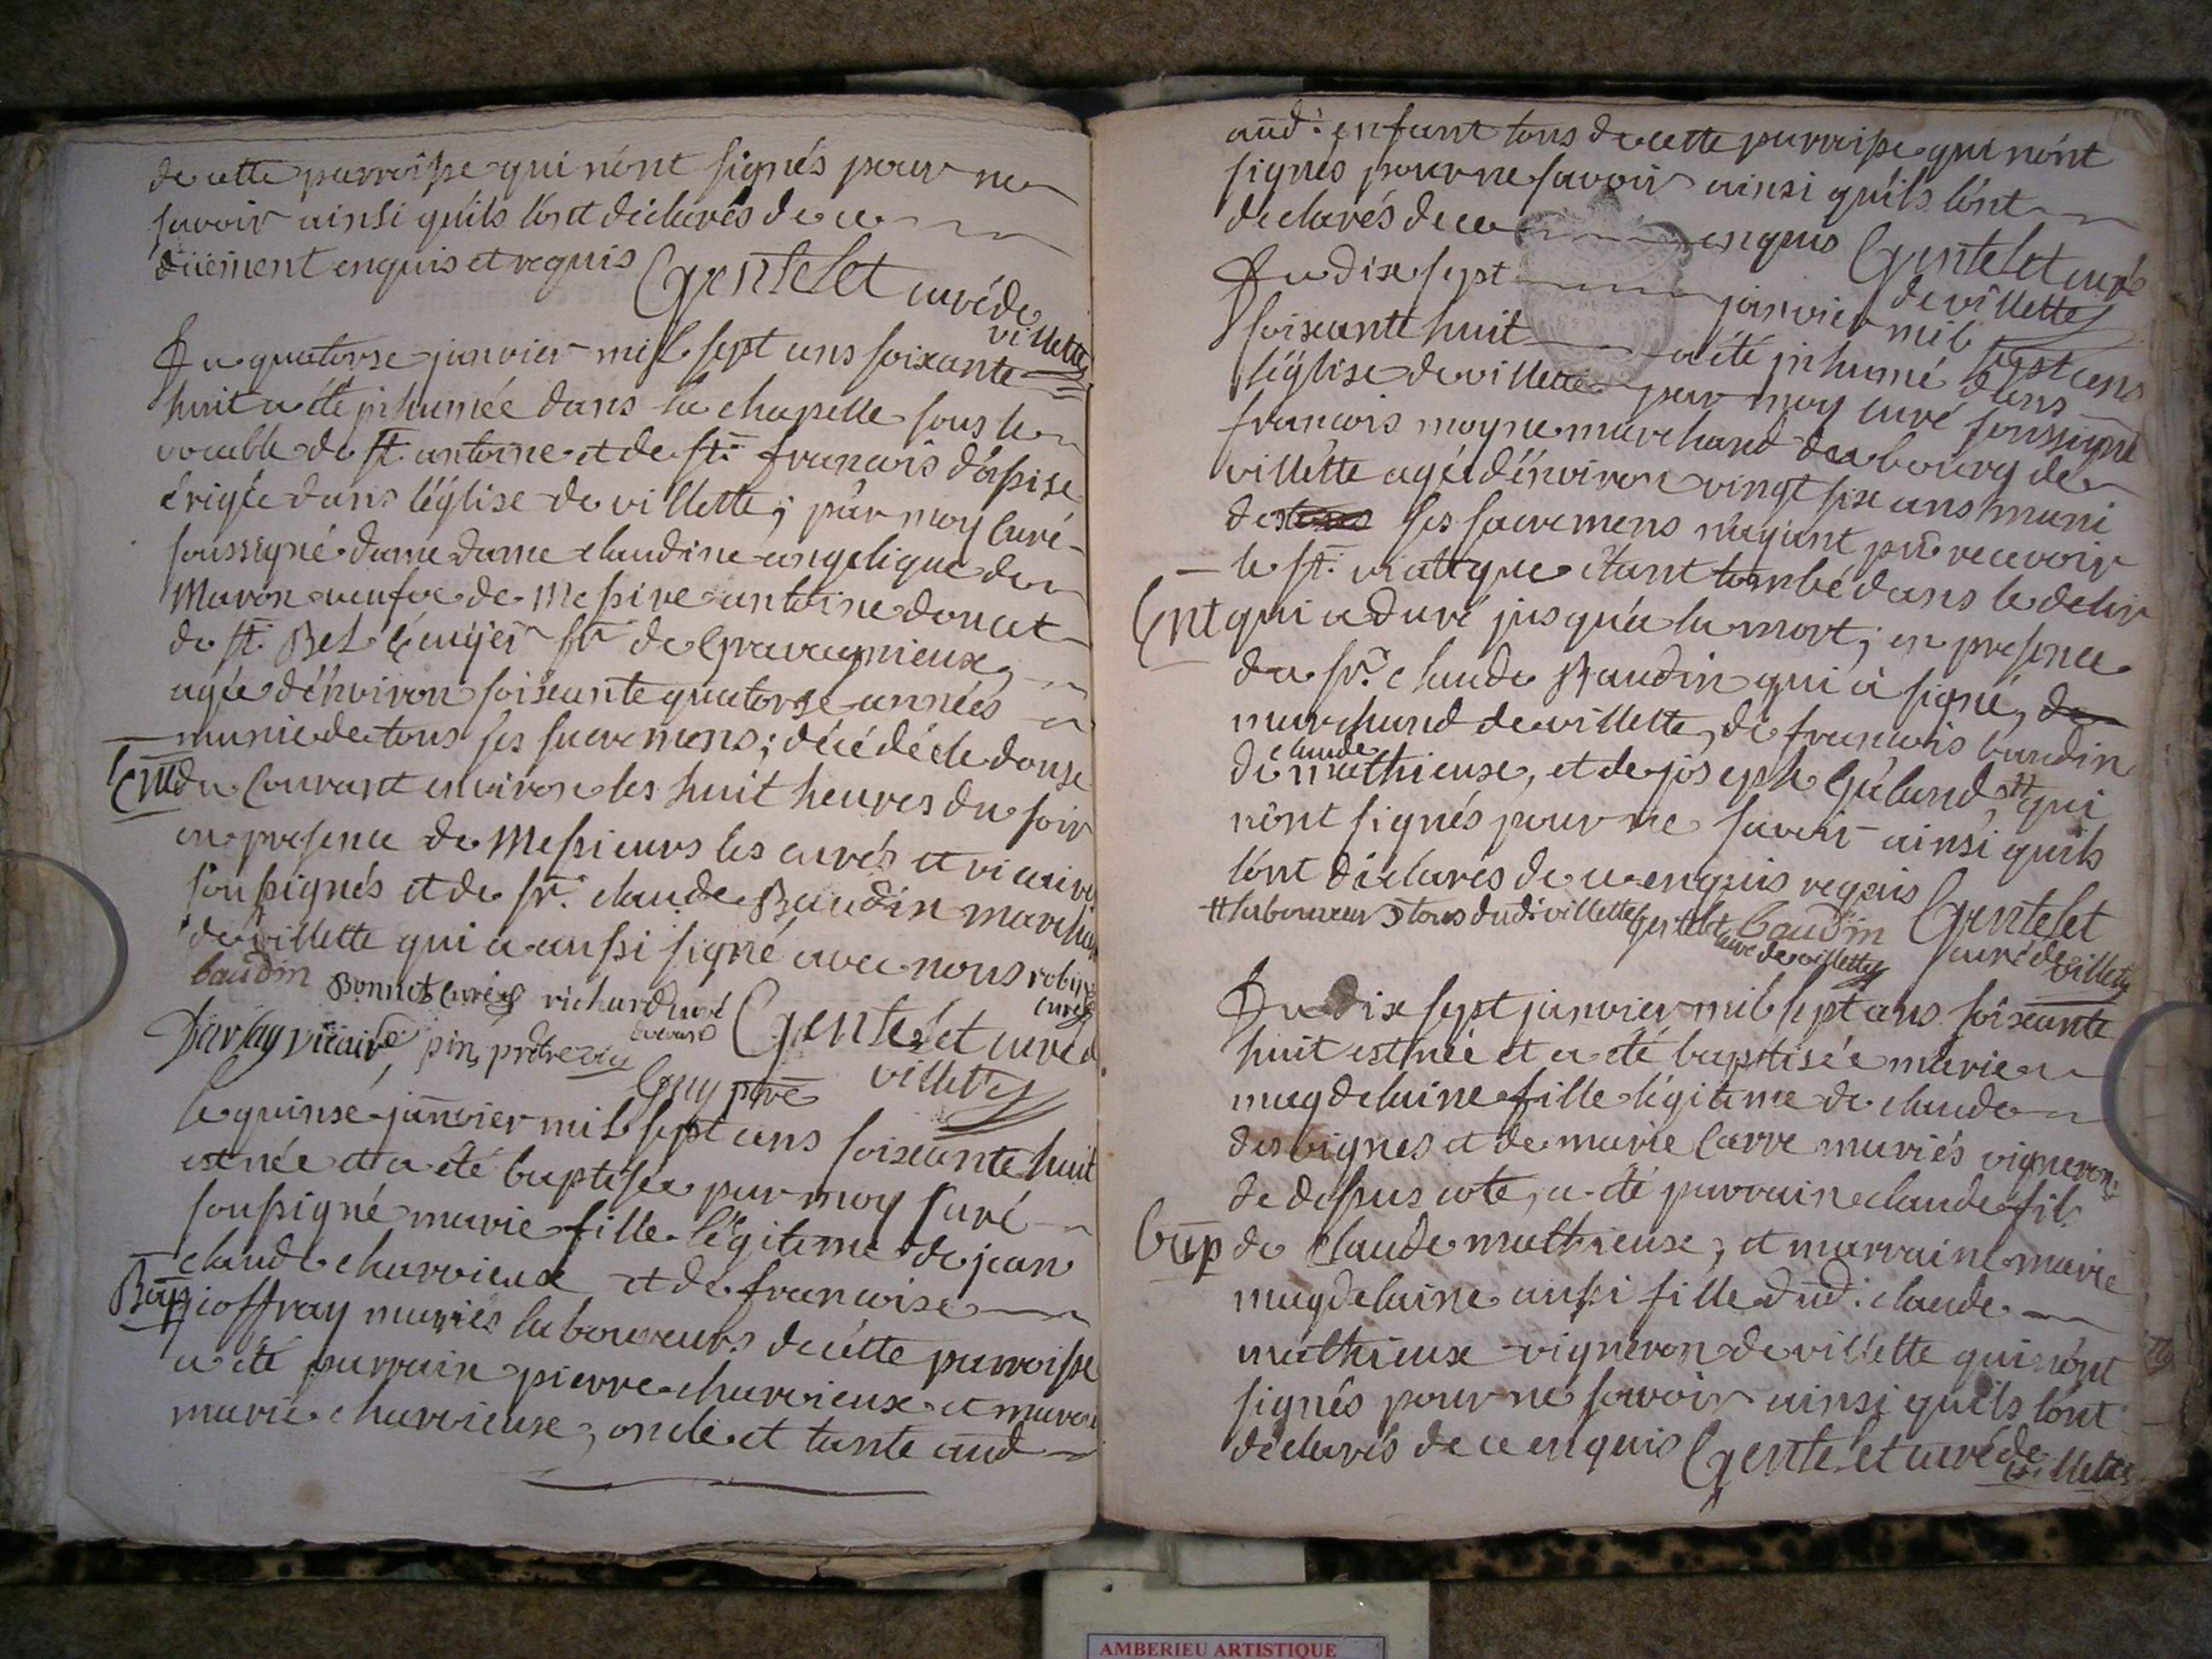 de cette parroisse qui n'ont signés pour ne
savoir ainsi qu'ils l'ont déclarés de ce
düement enquis et requis Gentelet curé de
villette
Du quatorse janvier mil sept cens soixante
huit a été inhumée dans la chapelle sous le
vocable de st. antoine et de st. francois d'assise
érigée dans l'église de villette, par moy curé
soussigné dame dame claudine angelique de
Maron veufve de Messire antoine donat
de st. Bel Ecuijer sr. de Gravagnieux
agée d'énviron soixante quatorse années
munie de tous ses sacremens; décédée le douse
Ent du Courant environ les huit heures du soir
en presence de Messieurs les curés et vicaires
soussignés et de sr. claude Baudin marchan
de villette qui a aussi signé avec nous robin
curé
baudin Bonnet curé richard curé
Darlay vicaire, pin, prêtre vic Gentelet curé d
Cony ptre villette
le quinse janvier mil sept cens soixante huit
est née et a été baptisée par moy Curé
soussigné marie fille légitime de jean
claude charvieux et de francoise
Bap joffray mariés laboureurs de cette parroisse
a été parrain pierre charvieux et marai
marie charvieux, oncle et tante aud
aud. enfant tous de cette parroisse qui n'ont
signés pour ne savoir ainsi qu'ils l'ont
declarés de ce enquis Gentelet curé
de villette
Du dix sept janvier mil sept cens
soixante huit a été inhumé dans
l'église de villette par moy curé soussigné
francois moyne marchand du bourg de
villette agé d'énviron vingt six ans muni
de ses sacremens n'ayant pû recevoir
le st. viatique étant tombé dans le delir
Ent qui a duré jusqu'a la mort; en presence
du sr. claude Baudin qui à signé, de
marchand de villette, de francois baudin
de claude mathieux, et de joseph Géland, # qui
n'ont signés pour ne savoir ainsi qu'ils
l'ont déclarés de ce enquis requis Gentelet
curé de villette
# laboureurs tous dudi villette Gentelet baudin
curé de villette
Du dix sept janvier mil sept cens soixante
huit est née et a été baptisée marie
magdelaine fille légitime de claude
des vignes et de marie Carre mariés vignerons
de dessus cote, a été parrain claude fils
bap de Claude mathieux, et marraine marie
magdelaine aussi fille dud. claude
mathieux vigneron de villette qui n'ont
signés pour ne savoir ainsi qu'ils l'ont
déclarés de ce enquis Gentelet curé de
villette
AMBERIEU ARTISTIQUE